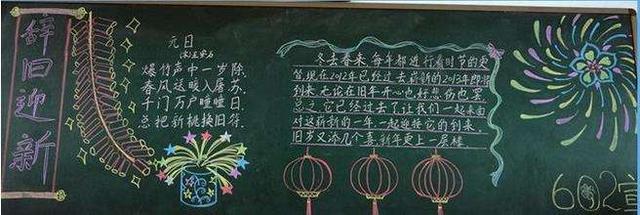 辞旧迎新
元日
(宋)王安石
爆竹声中一岁除,
春风送暖入屠苏.
千门万户曈曈日,
总把新桃换旧符.
冬去春来,每年都进行着时节的更
替,现在2012年已经过去,崭新的2013年即将
到来,无论在旧年开心也好悲伤也罢,
总之,它已经过去了,让我们一起来面
对这崭新的一年,一起迎接它的到来.
旧岁又添几个喜,新年更上一层楼.
602宣